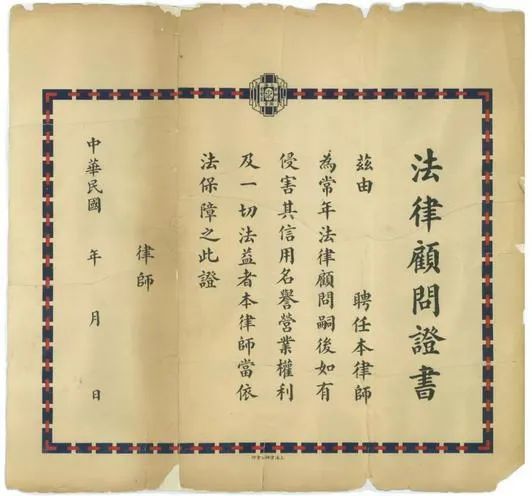 法律顧問證書
茲由 聘任本律師
為常年法律顧問嗣後如有
侵害其信用名譽營業權利
及一切法益者本律師當依
法保障之此證
律師
中華民國 年 月 日